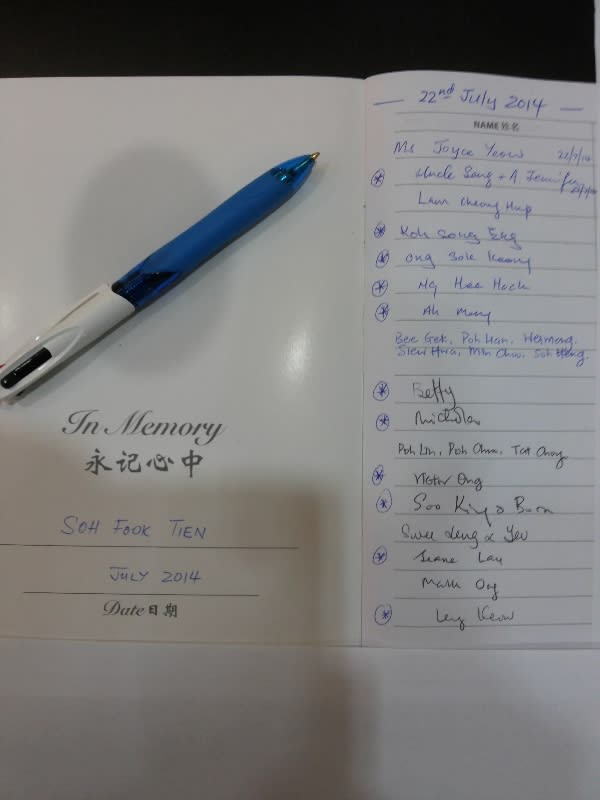 In Memory
永记心中
SOH FOOK TIEN
JULY 2014
Date日期
22nd July 2014
NAME 姓名
Ms Joyce Yeow 22/7/14
Uncle Sang + A. Jennifer
Lam Cheong Hup
Koh Song Eng
Ong Sok Koong
Ng Hee Hock
Ah Meng
Bee Gek, Poh Han, Weimeng,
Siew Hwa, Min Choo, Soh Heng.
Betty
Nicholas
Poh Lin, Poh Chu, Tat Chong
Victor Ong
Soo King & Boon
Swee Leng & Yeo
Jeane Lau
Mark Ong
Leng Keow